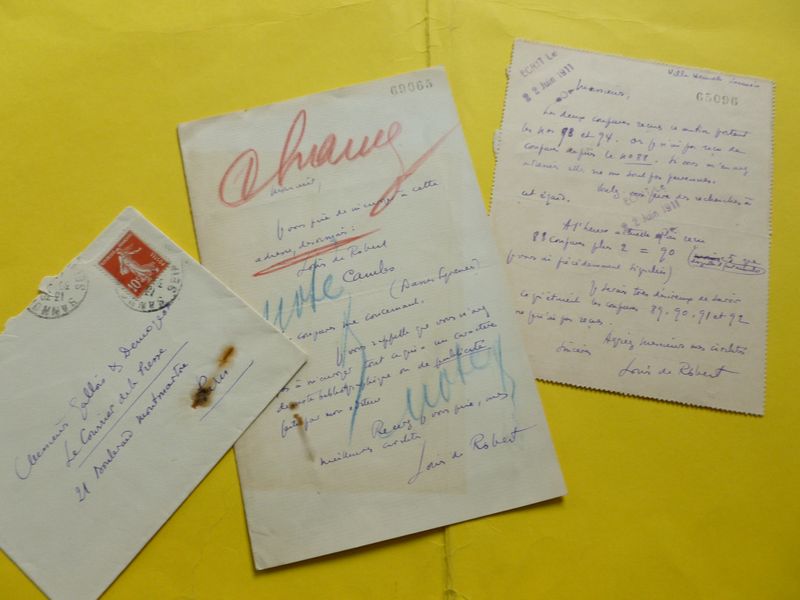 Messieurs Gallois & Demogeot
Le Courrier de la Presse
21 Boulevard Montmartre
Paris
10
69065
Monsieur,
Je vous prie de m'envoyer à cette
adresse, désormais :
Louis de Robert
Cambo
(Basses Pyrénées)
coupures me concernant.
Je vous rappelle que vous n'avez
à m'envoyer tout ce qui a un caractère
de note bibliographique ou de publicité
faite par mon éditeur
Recevez je vous prie, mes
meilleures civilités
Louis de Robert
note
note
Villa
65096
ECRIT LE
22 Juin 1911
Monsieur,
Les deux coupures reçues ce matin portent
les nos 93 et 94. Or je n'ai pas reçu de
coupures depuis le no 88. Si vous m'en avez
elles ne me sont pas parvenues.
faire des recherches à
cet égard.
22 Juin 1911
A l'heure actuelle j'ai reçu
88 coupures plus 2 = 90
je vous ai précédemment signalée)
Je serais très désireux de savoir
ce qu'étaient les coupures 89, 90, 91 et 92
que je n'ai pas reçues.
Agréez Monsieur mes civilités
Louis de Robert